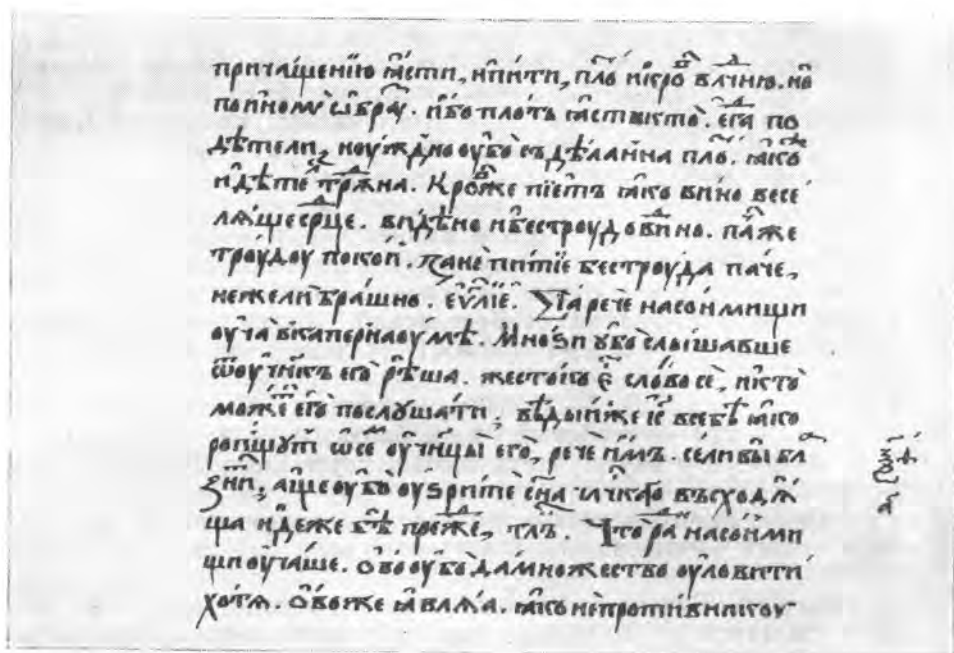 причащенїю ꙗсти, и пити, пло́ и кро́ влчню. но
по и҆номꙋ ѡ҆браꙁꙋ. и҆бо плоть ꙗсть кто̀. є҆гда по
дѣтели, ноужⷣно оубо съдѣланна пло́. ꙗко
и дѣтѣ трꙋⷣна. Кро́ же пїетъ ꙗко вино весе
лѧще срⷣце. видѣно и бестроудо вино. па́ же
троудоу покои. Ꙁанѐ питїе бестроуда паче,
нежели брашно. є҆ѵⷢлїє. Сїа рече на соньмищи
оуча в капернаоумѣ. Мноꙃи ꙋбо слышавше
ѿ оучн҃къ его рѣша. жестоко є҆ⷭ слово се, и кто
може его послушати, вѣдыи же і҃с в себѣ ꙗко
ропщуⷮ ѡ сеⷨ оучн҃цы его, рече имъ. се ли вы бла
ꙁниⷮ, аще оубо оуꙃрите с҃на члчкаⷢо въсходѧ
ща идеже бѣ преже, тлъ. Что раⷣ на соньми
щи оучаше. Ово оубо да множество оуловити
хотѧ. Ово же ꙗвлѧа. ꙗко не противникоу